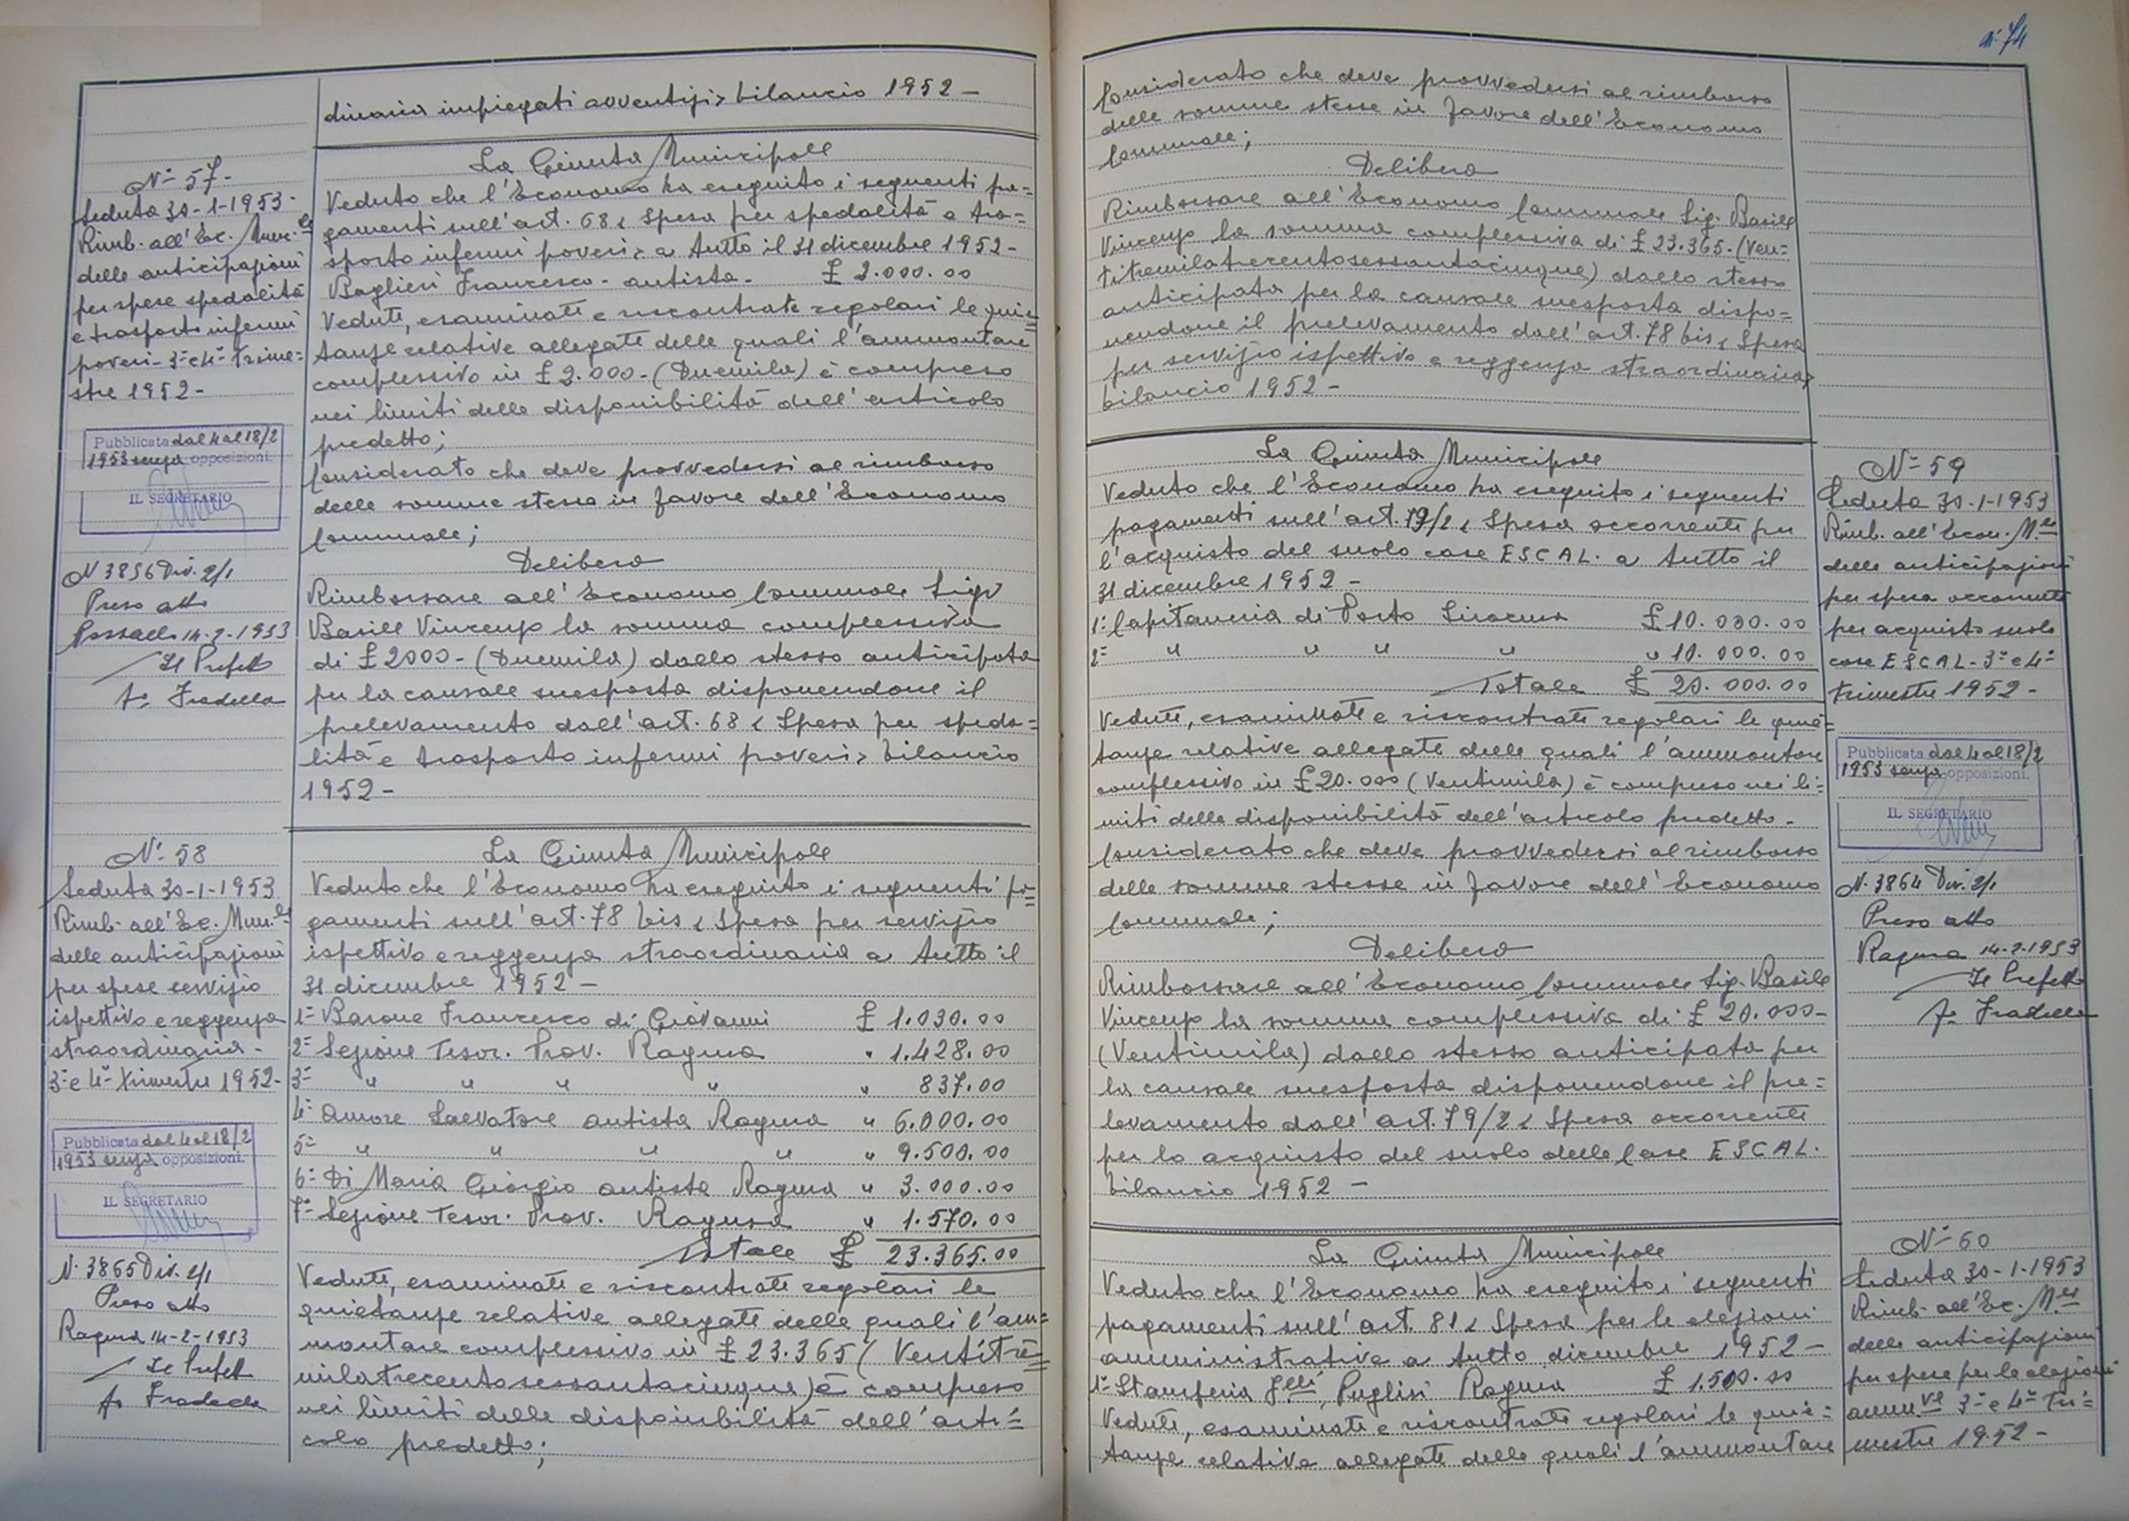 dinaria impiegati avventizi> bilancio 1952 -
N° 57 -
Seduta 30-1-1953 -
Rimb. all'Ec. Mun.le
delle anticipazioni
per spese spedalità
e trasporto infermi
poveri - 3° e 4° trime=
stre 1952 -
Pubblicata dal 4 al 18/2
1953 senza opposizioni.
IL SEGRETARIO
N 3856 Div. 2/1
Preso atto
14-2-1953
Il Prefetto
La Giunta Municipale
Veduto che l'Economo ha eseguito i seguenti pa=
gamenti sull'art. 68 < Spesa per spedalità e tra=
sporto infermi poveri > a tutto il 31 dicembre 1952 -
Baglieri Francesco - autista - £ 2.000.00
Vedute, esaminate e riscontrate regolari le quie=
tanze relative allegate delle quali l'ammontare
complessivo in £ 2.000 - (Duemila) è compreso
nei limiti delle disponibilità dell'articolo
predetto;
Considerato che deve provvedersi al rimborso
delle somme stesse in favore dell'Economo
Comunale;
Delibera
Rimborsare all'Economo Comunale Sigr
Basile Vincenzo la somma complessiva
di £ 2000 - (Duemila) dallo stesso anticipata
per la causale suesposta disponendone il
prelevamento dall'art. 68 < Spesa per speda=
lità e trasporto infermi poveri > bilancio
1952 -
N° 58
Seduta 30-1-1953
Rimb. all'Ec. Mun.le
delle anticipazioni
per spese servizio
ispettivo e reggenza
straordinaria -
3° e 4° trimestre 1952 -
Pubblicata dal 4 al 18/2
1953 senza opposizioni.
IL SEGRETARIO
N. 3865 Div. 2/1
Preso atto
Ragusa 14-2-1953
Il Prefetto
La Giunta Municipale
Veduto che l'Economo ha eseguito i seguenti pa=
gamenti sull'art. 78 bis < Spesa per servizio
ispettivo e reggenza straordinaria a tutto il
31 dicembre 1952 -
1° Barone Francesco di Giovanni £ 1.030.00
2° Sezione Tesor. Prov. Ragusa " 1.428.00
3° " " " " " 837.00
4° Amore Salvatore autista Ragusa " 6.000.00
5° " " " " " 9.500.00
6° Di Maria Giorgio autista Ragusa " 3.000.00
7° Sezione Tesor. Prov. Ragusa " 1.570.00
Totale £ 23.365.00
Vedute, esaminate e riscontrate regolari le
quietanze relative allegate delle quali l'am=
montare complessivo in £ 23.365 (Ventitre=
milatrecentosessantacinque) è compreso
nei limiti delle disponibilità dell'arti=
colo predetto;
n° 74
Considerato che deve provvedersi al rimborso
delle somme stesse in favore dell'Economo
Comunale;
Delibera
Rimborsare all'Economo Comunale Sig. Basile
Vincenzo la somma complessiva di £ 23.365 - (Ven=
titremilatrecentosessantacinque) dallo stesso
anticipata per la causale suesposta dispo=
nendone il prelevamento dall'art. 78 bis < Spesa
per servizio ispettivo e reggenza straordinaria>
bilancio 1952 -
La Giunta Municipale
Veduto che l'Economo ha eseguito i seguenti
pagamenti sull'art. 79/2 < Spesa occorrente per
l'acquisto del suolo case ESCAL. a tutto il
31 dicembre 1952 -
1° Capitaneria di Porto Siracusa £ 10.000.00
2° " " " " " 10.000.00
Totale £ 20.000.00
Vedute, esaminate e riscontrate regolari le quie=
tanze relative allegate delle quali l'ammontare
complessivo in £ 20.000 (Ventimila) è compreso nei li=
miti delle disponibilità dell'articolo predetto -
Considerato che deve provvedersi al rimborso
delle somme stesse in favore dell'Economo
Comunale;
Delibera
Rimborsare all'Economo Comunale Sig. Basile
Vincenzo la somma complessiva di £ 20.000 -
(Ventimila) dallo stesso anticipata per
la causale suesposta disponendone il pre=
levamento dall'art. 79/2 < Spesa occorrente
per lo acquisto del suolo delle Case ESCAL.
bilancio 1952 -
N° 59
Seduta 30-1-1953
Rimb. all'Econ. M.le
delle anticipazioni
per spesa occorrente
per acquisto suolo
case ESCAL - 3° e 4°
trimestre 1952 -
Pubblicata dal 4 al 18/2
1953 senza opposizioni.
IL SEGRETARIO
N. 3864 Div. 2/1
Preso atto
Ragusa 14-2-1953
Il Prefetto
La Giunta Municipale
Veduto che l'Economo ha eseguito i seguenti
pagamenti sull'art. 81 < Spesa per le elezioni
amministrative a tutto dicembre 1952 -
1° Stamperia F.lli Puglisi Ragusa £ 1.500.00
Vedute, esaminate e riscontrate regolari le quie=
tanze relative allegate delle quali l'ammontare
N° 60
Seduta 30-1-1953
Rimb. all'Ec. M.le
delle anticipazioni
per spese per le elezioni
amm.ve 3° e 4° Tri=
mestre 1952 -